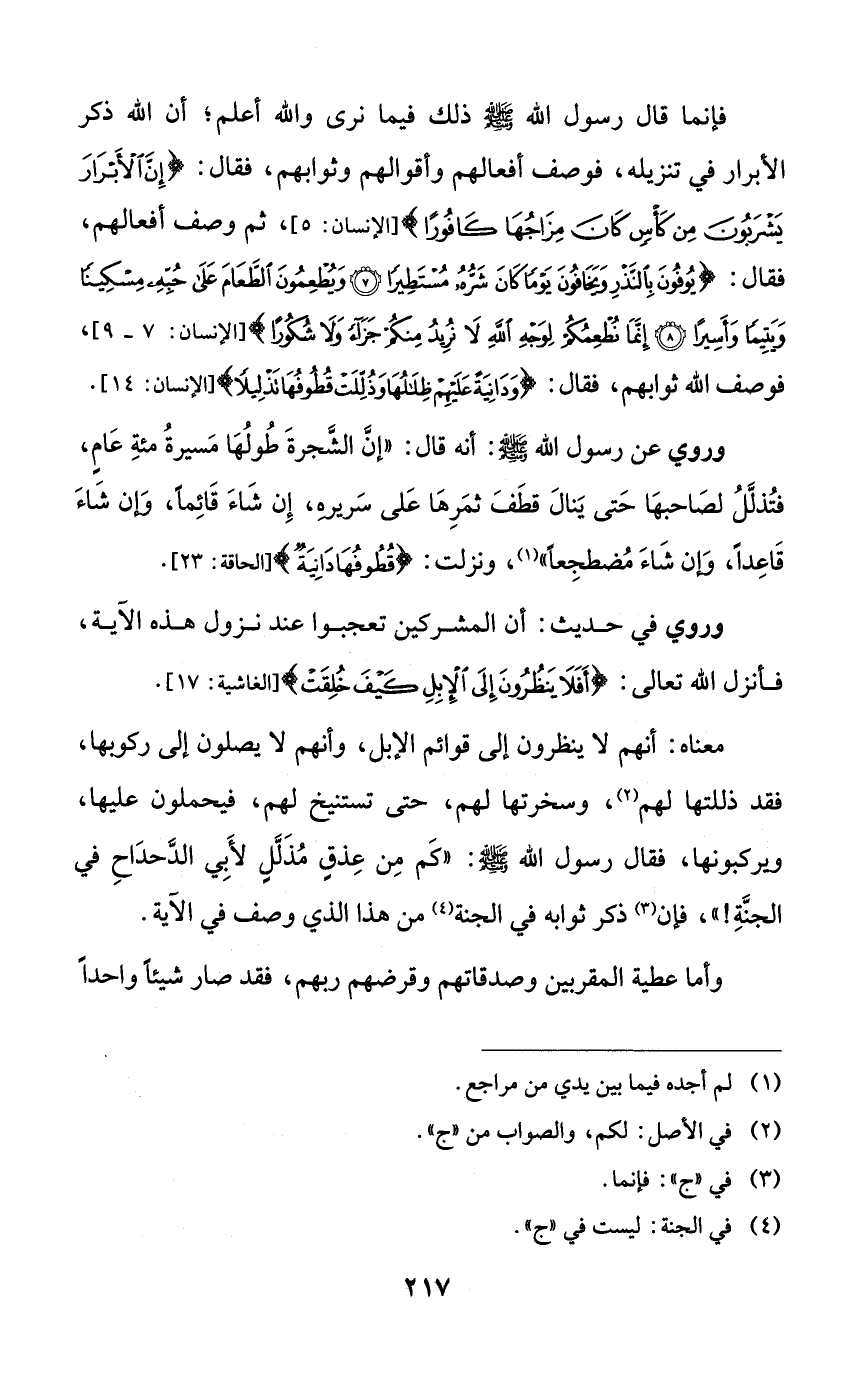 فإنما قال رسول الله ﷺ ذلك فيما نرى والله أعلم؛ أن الله ذكر
الأبرار في تنزيله، فوصف أفعالهم وأقوالهم وثوابهم، فقال: ﴿إِنَّ ٱلۡأَبۡرَارَ
يَشۡرَبُونَ مِن كَأۡسٖ كَانَ مِزَاجُهَا كَافُورًا﴾ [الإنسان: ٥]، ثم وصف أفعالهم،
فقال: ﴿يُوفُونَ بِٱلنَّذۡرِ وَيَخَافُونَ يَوۡمٗا كَانَ شَرُّهُۥ مُسۡتَطِيرٗا ۝٧ وَيُطۡعِمُونَ ٱلطَّعَامَ عَلَىٰ حُبِّهِۦ مِسۡكِينٗا
وَيَتِيمٗا وَأَسِيرًا ۝٨ إِنَّمَا نُطۡعِمُكُمۡ لِوَجۡهِ ٱللَّهِ لَا نُرِيدُ مِنكُمۡ جَزَآءٗ وَلَا شُكُورًا﴾ [الإنسان: ٧ ـ ٩]،
فوصف الله ثوابهم، فقال: ﴿وَدَانِيَةً عَلَيۡهِمۡ ظِلَٰلُهَا وَذُلِّلَتۡ قُطُوفُهَا تَذۡلِيلٗا﴾ [الإنسان: ١٤].
وروي عن رسول الله ﷺ: أنه قال: «إنَّ الشَّجرةَ طُولُهَا مَسيرةُ مئةِ عَامٍ،
فتُذلَّلُ لصَاحبهَا حَتى يَنالَ قطَفَ ثمَرِهَا عَلى سَريرِهِ، إن شَاءَ قَائِماً، وَإن شَاءَ
قَاعِداً، وَإن شَاءَ مُضطجِعاً»(١)، ونزلت: ﴿قُطُوفُهَا دَانِيَةٞ﴾ [الحاقة: ٢٣].
وروي في حديث: أن المشركين تعجبوا عند نزول هذه الآية،
فأنزل الله تعالى: ﴿أَفَلَا يَنظُرُونَ إِلَى ٱلۡإِبِلِ كَيۡفَ خُلِقَتۡ﴾ [الغاشية: ١٧].
معناه: أنهم لا ينظرون إلى قوائم الإبل، وأنهم لا يصلون إلى ركوبها،
فقد ذللتها لهم(٢)، وسخرتها لهم، حتى تستنيخ لهم، فيحملون عليها،
ويركبونها، فقال رسول الله ﷺ: «كَم مِن عِذقٍ مُذَلَّلٍ لأَبِي الدَّحدَاحِ في
الجنَّةِ!»، فإن(٣) ذكر ثوابه في الجنة(٤) من هذا الذي وصف في الآية.
وأما عطية المقربين وصدقاتهم وقرضهم ربهم، فقد صار شيئاً واحداً
(١) لم أجده فيما بين يدي من مراجع.
(٢) في الأصل: لكم، والصواب من «ج».
(٣) في «ج»: فإنما.
(٤) في الجنة: ليست في «ج».
٢١٧